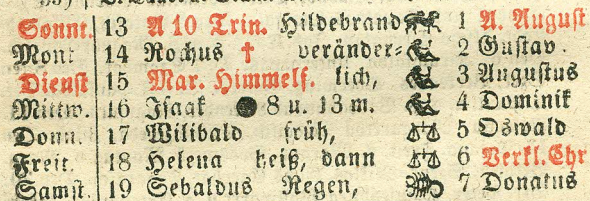 Sonnt. 13 A 10 Trin. Hildebrand 1 A. August
Mont 14 Rochus † veränder- 2 Gustav.
Dienst 15 Mar. Himmelf. lich, 3 Augustus
Mittw. 16 Isaak ● 8 u. 13 m. 4 Dominik
Donn. 17 Wilibald früh, 5 Oswald
Freit. 18 Helena heiß, dann 6 Verkl. Chr
Samst. 19 Sebaldus Regen, 7 Donatus